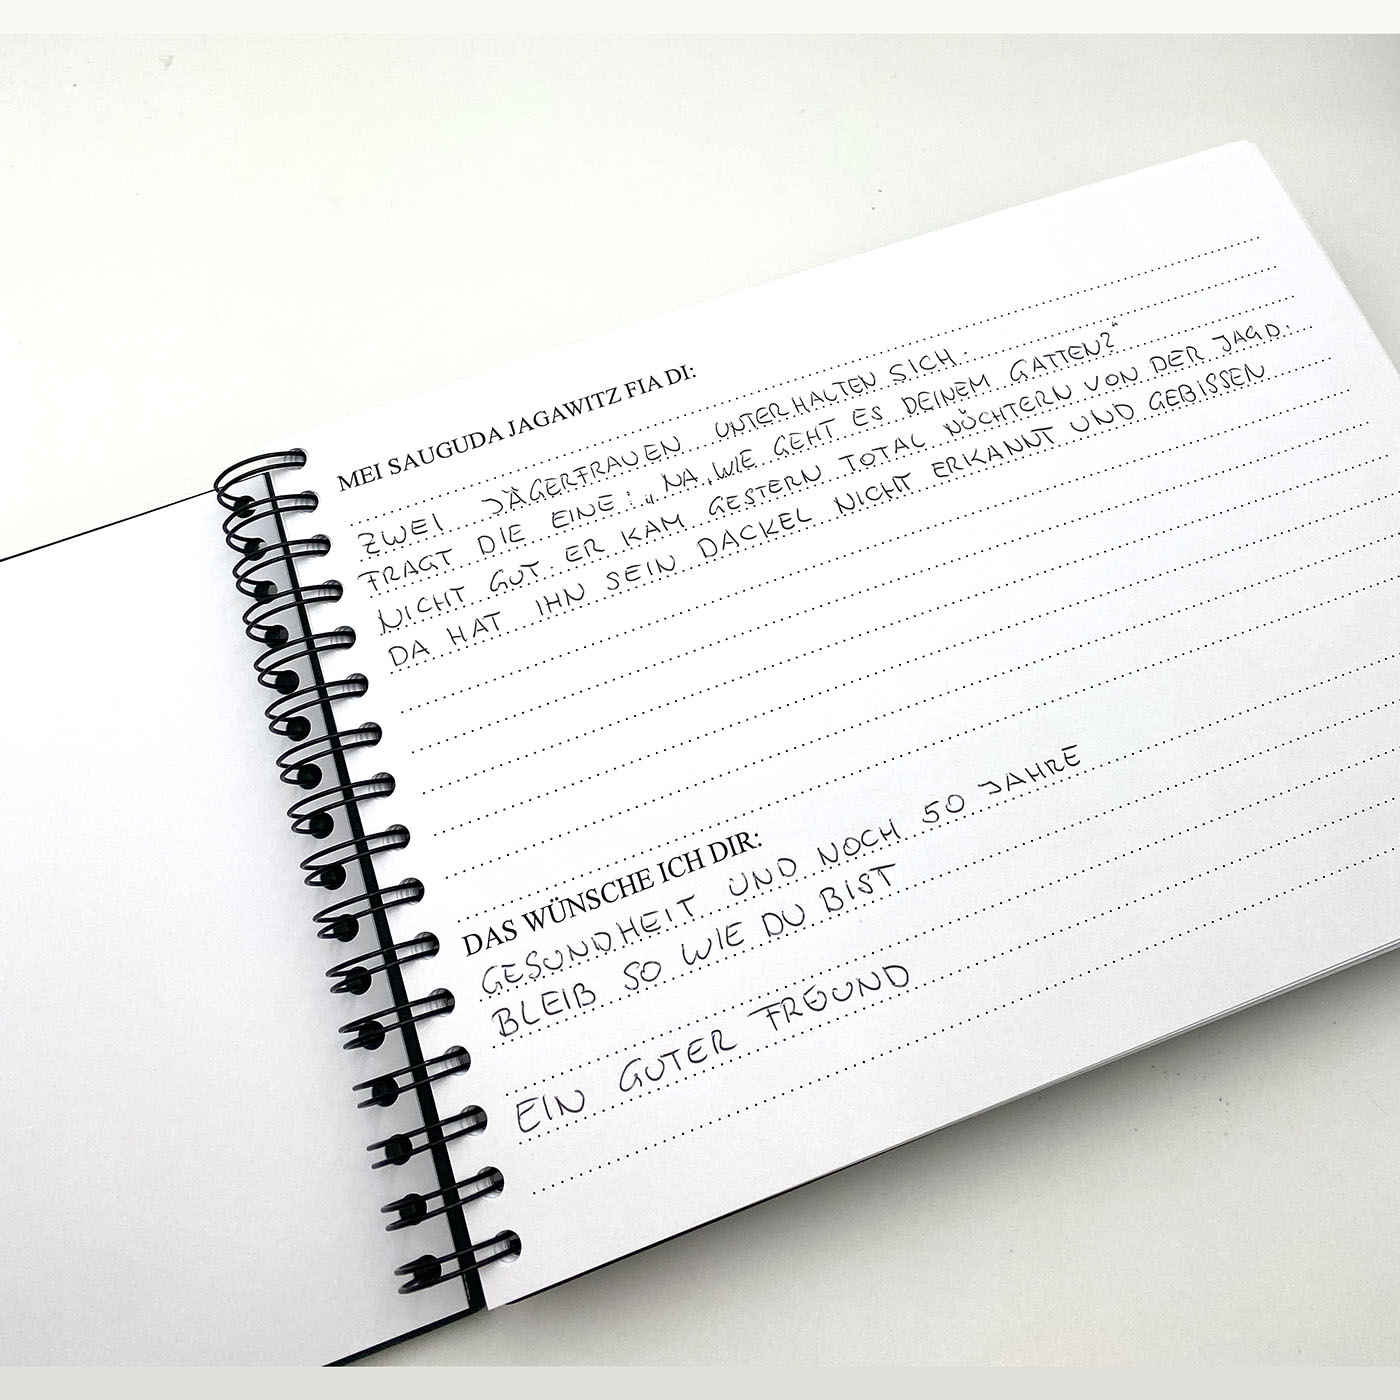 MEI SAUGUDA JAGAWITZ FIA DI:
ZWEI JÄGERFRAUEN UNTERHALTEN SICH.
FRAGT DIE EINE: „NA, WIE GEHT ES DEINEM GATTEN?“
NICHT GUT. ER KAM GESTERN TOTAL NÜCHTERN VON DER JAGD.
DA HAT IHN SEIN DACKEL NICHT ERKANNT UND GEBISSEN
DAS WÜNSCHE ICH DIR:
GESUNDHEIT UND NOCH 50 JAHRE
BLEIB SO WIE DU BIST
EIN GUTER FREUND